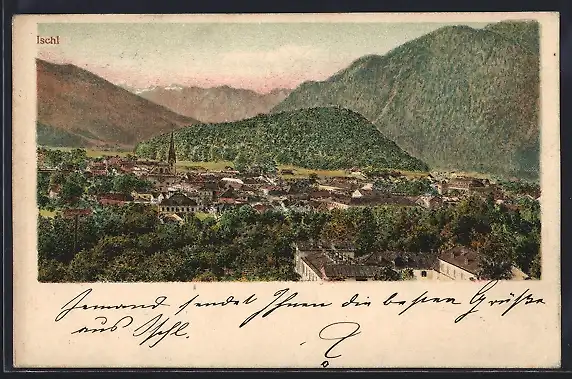 Ischl
Jemand sendet Ihnen die besten Grüße
aus Ischl.
?